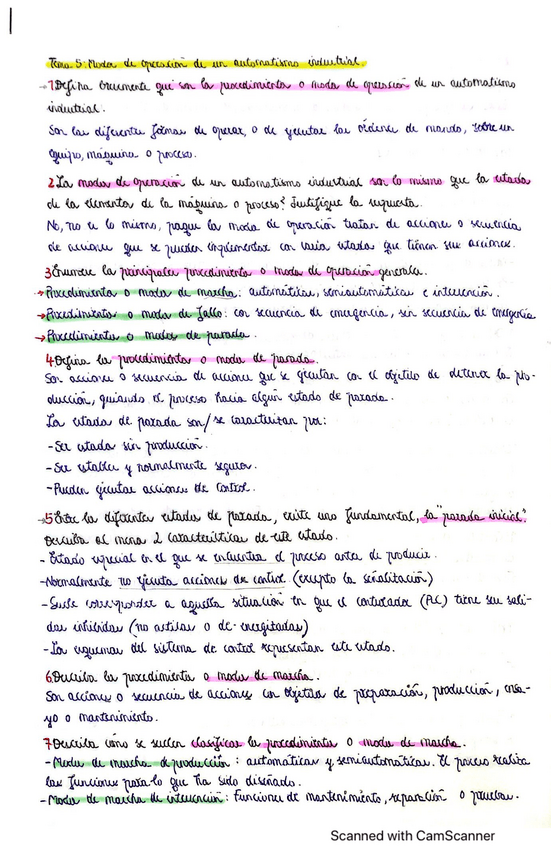 Tema 5: Modos de operación de un automatismo industrial.
→1.Defina brevemente qué son los procedimientos o modos de operación de un automatismo
industrial.
Son las diferentes formas de operar, o de ejecutar las órdenes de mando, sobre un
equipo, máquina o proceso.
2.¿Los modos de operación de un automatismo industrial son lo mismo que los estados
de los elementos de la máquina o proceso? Justifique la respuesta.
No, no es lo mismo, porque los modos de operación tratan de acciones o secuencia
de acciones que se pueden implementar con varios estados que tienen sus acciones.
3.Enumere los principales procedimientos o modos de operación generales.
→Procedimientos o modos de marcha: automáticas, semiautomáticas e intervención.
→Procedimientos o modos de fallo: con secuencia de emergencia, sin secuencia de emergencia
→Procedimientos o modos de parada.
4.Defina los procedimientos o modos de parada.
Son acciones o secuencia de acciones que se ejecutan con el objetivo de detener la pro-
ducción, guiando el proceso hacia algún estado de parada.
Los estados de parada son/se caracterizan por:
-Ser estados sin producción.
-Ser estables y normalmente seguros.
-Pueden ejecutar acciones de control.
→5.Entre los diferentes estados de parada, existe uno fundamental, la "parada inicial".
Describa al menos 2 características de este estado.
-Estado especial en el que se encuentra el proceso antes de producir.
-Normalmente no ejecuta acciones de control (excepto la señalización)
-Suele corresponder a aquella situación en que el controlador (PLC) tiene sus sali-
das inhibidas (no activas o des-energizadas)
-Los esquemas del sistema de control representan este estado.
6.Describa los procedimientos o modos de marcha.
Son acciones o secuencia de acciones con objetivos de preparación, producción, ensa-
yo o mantenimiento.
7.Describa cómo se suelen clasificar los procedimientos o modos de marcha.
-Modos de marcha de producción: automáticas y semiautomáticas. El proceso realiza
las funciones para lo que ha sido diseñado.
-Modos de marcha de intervención: Funciones de mantenimiento, reparación o pruebas.
Scanned with CamScanner